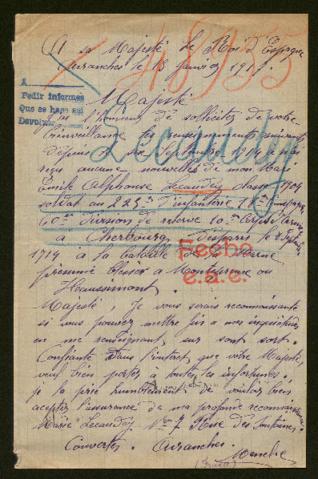 A sa Majesté Le Roi d'Espagne
48955
Avranches le 13 janvier 1917.
A
Pedir informes
Que se haga así
Devolver
Majesté
J'ai l'honneur de solliciter de votre
bienveillance les renseignements suivants
depuis Septembre 1914 je n'ai
reçu aucune nouvelles de mon Mari
Lecaudey
Emile Alphonse Lecaudey classe 1904
soldat au 225e d'infanterie
60e Division de réserve 10e Corps
à Cherbourg, Disparu le 8
1914 à la bataille de la Marne
Fecho
e.a.e.
présumé blessé à ou
Haussimont.
Majesté Je vous serais reconnaissante
si vous pouviez mettre fin à nos inquiétudes
en me renseignant sur son sort.
Confiante dans l'intérêt que votre Majesté
veut bien porter à toutes les infortunes,
je la prie humblement de vouloir bien
accepter l'assurance de ma profonde reconnaissance
Marie Lecaudey No 7 Rue des Fontaines
Couvertes. Avranches. Manche